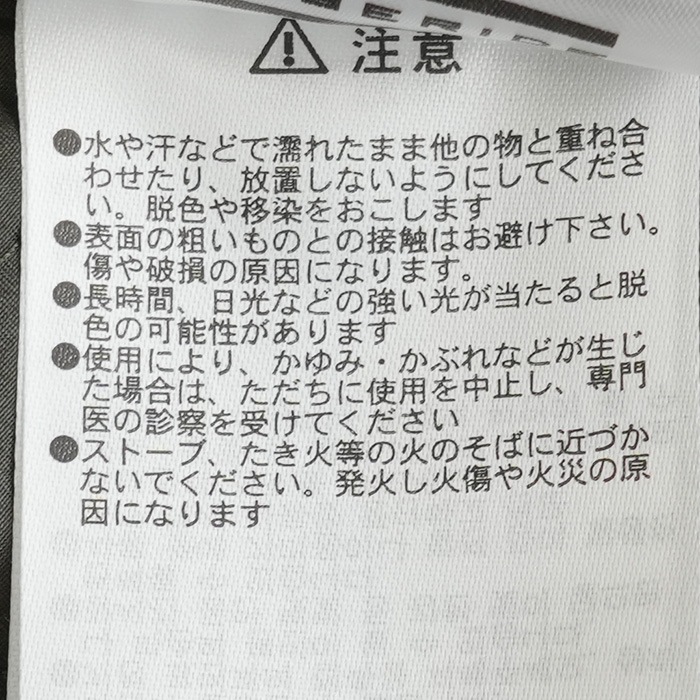 注意
●水や汗などで濡れたまま他の物と重ね合
わせたり、放置しないようにしてくださ
い。脱色や移染をおこします
●表面の粗いものとの接触はお避け下さい。
傷や破損の原因になります。
●長時間、日光などの強い光が当たると脱
色の可能性があります
●使用により、かゆみ・かぶれなどが生じ
た場合は、ただちに使用を中止し、専門
医の診察を受けてください
●ストーブ、たき火等の火のそばに近づか
ないでください。発火し火傷や火災の原
因になります